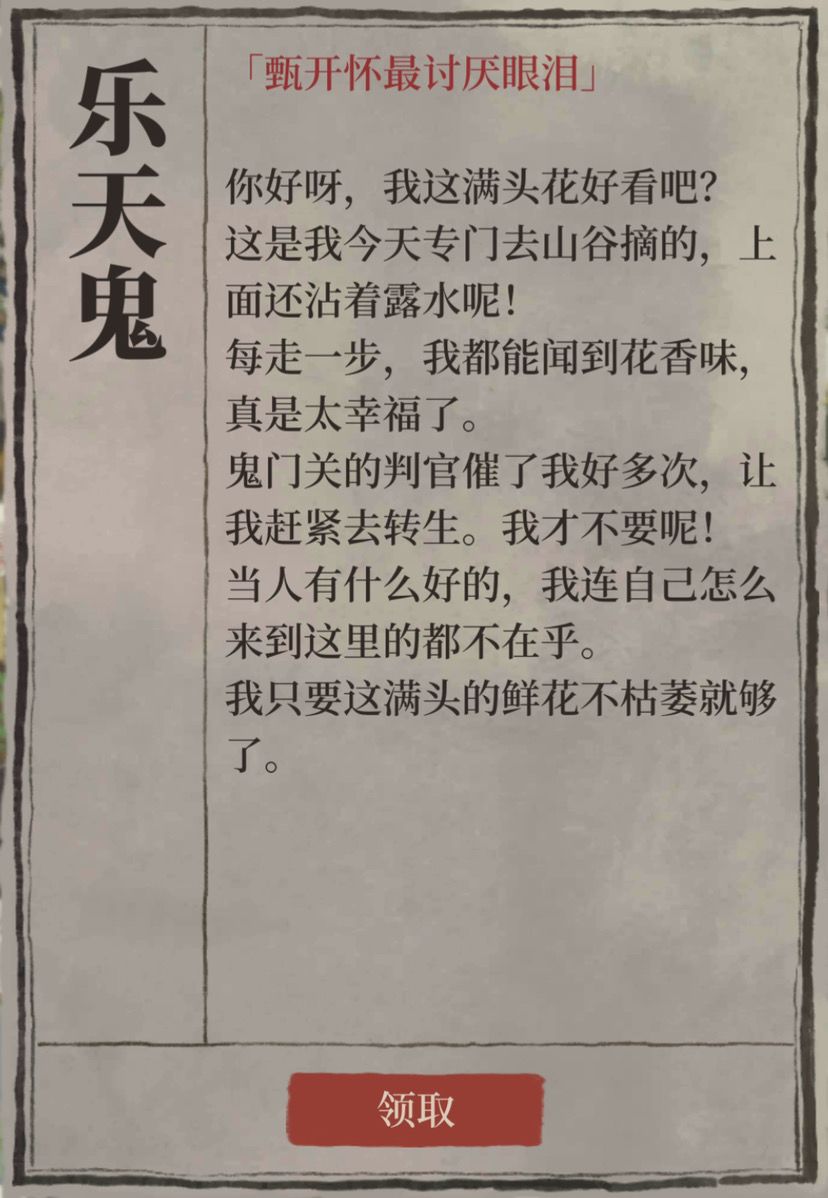 乐天鬼
「甄开怀最讨厌眼泪」
你好呀，我这满头花好看吧？
这是我今天专门去山谷摘的，上
面还沾着露水呢！
每走一步，我都能闻到花香味，
真是太幸福了。
鬼门关的判官催了我好多次，让
我赶紧去转生。我才不要呢！
当人有什么好的，我连自己怎么
来到这里的都不在乎。
我只要这满头的鲜花不枯萎就够
了。
领取